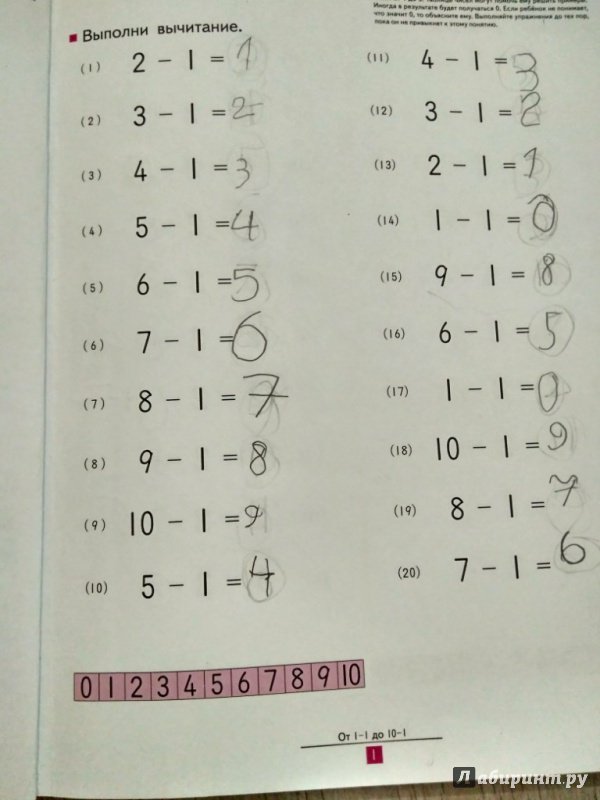 Иногда в результате будет получаться 0. Если ребёнок не понимает,
что значит 0, то объясните ему. Выполняйте упражнения до тех пор,
пока он не привыкнет к этому понятию.
Выполни вычитание.
(1) 2 - 1 = 1
(2) 3 - 1 = 2
(3) 4 - 1 = 3
(4) 5 - 1 = 4
(5) 6 - 1 = 5
(6) 7 - 1 = 6
(7) 8 - 1 = 7
(8) 9 - 1 = 8
(9) 10 - 1 = 9
(10) 5 - 1 = 4
(11) 4 - 1 = 3
(12) 3 - 1 = 2
(13) 2 - 1 = 1
(14) 1 - 1 = 0
(15) 9 - 1 = 8
(16) 6 - 1 = 5
(17) 1 - 1 = 0
(18) 10 - 1 = 9
(19) 8 - 1 = 7
(20) 7 - 1 = 6
0 1 2 3 4 5 6 7 8 9 10
От 1-1 до 10-1
1
Лабиринт.ру